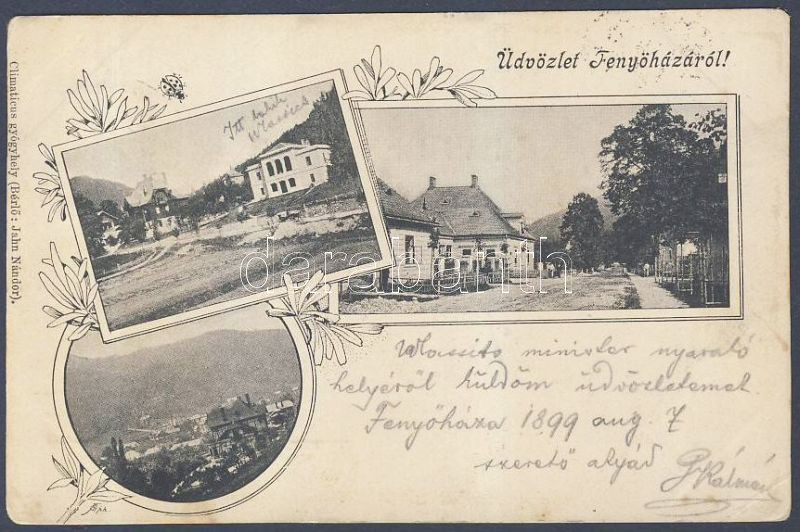 Üdvözlet Fenyőházáról!
Climaticus gyógyhely (Bérlő: Jahn Nándor).
Itt lakik
Wlassics
darabanth
Wlassits minister nyaraló
helyéről küldöm üdvözletemet
Fenyőháza 1899 aug. 7
szerető atyád
Kálmán